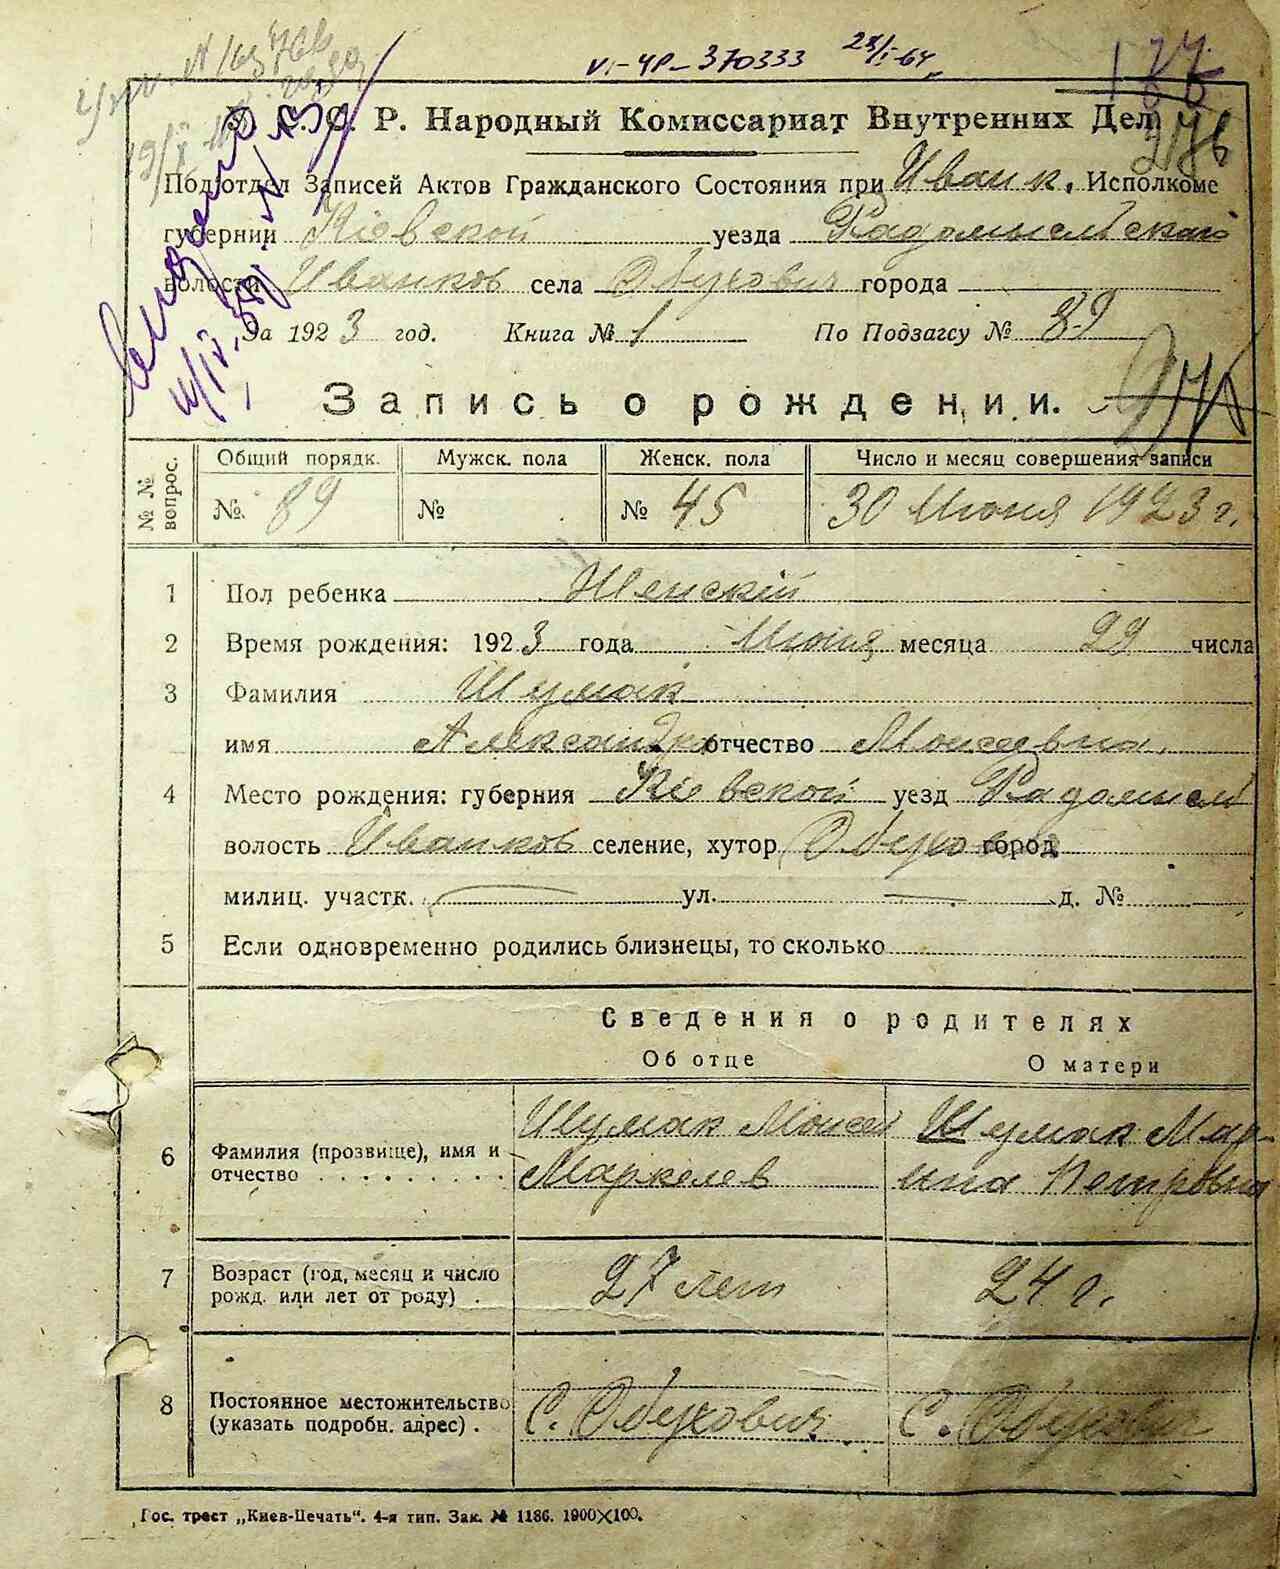 VI-ЧР-370333 23/I-64
У. С. С. Р. Народный Комиссариат Внутренних Дел
Подотдел Записей Актов Гражданского Состояния при Иванк. Исполкоме
губернии Кіевской уезда Радомысльскаго
волости Иванков села Обухович города
За 1923 год. Книга № 1 По Подзагсу № 89
Запись о рождении.
№ № вопрос.
Общий порядк. Мужск. пола Женск. пола Число и месяц совершения записи
№ 89 № № 45 30 Июня 1923 г.
1 Пол ребенка Шенскій
2 Время рождения: 1923 года Июня месяца 29 числа
3 Фамилия Шумак
имя Александра отчество Моисеевна.
4 Место рождения: губерния Кіевской уезд Радомысл
волость Иванков селение, хутор Обухов город
милиц. участк. ул. д. №
5 Если одновременно родились близнецы, то сколько
Сведения о родителях
Об отце О матери
6 Фамилия (прозвище), имя и отчество
Шумак Моисей
Маркелев
Шумак Мар-
ина Петровна
7 Возраст (год, месяц и число рожд. или лет от роду) . 27 лет 24 г.
8 Постоянное местожительство (указать подробн. адрес) . С. Обухович С. Обухович
Гос. трест „Киев-Печать“. 4-я тип. Зак. № 1186. 1900×100.